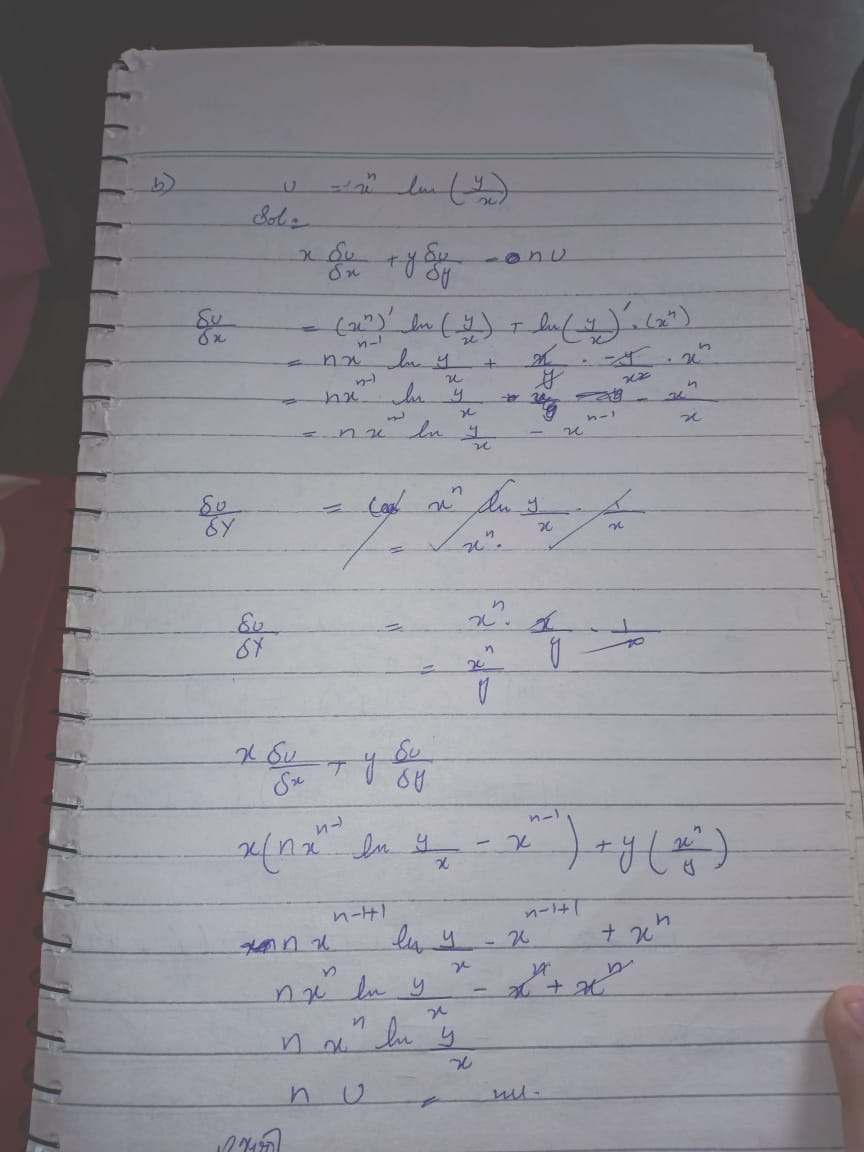 b) U = xⁿ ln (y/x)
Sol =
x δu/δx + y δu/δy - nU
δu/δx = (xⁿ)' ln (y/x) + ln (y/x)' · (xⁿ)
= nxⁿ⁻¹ ln y/x + x/y · -y/x² · xⁿ
= nxⁿ⁻¹ ln y/x - xⁿ/x
= nxⁿ⁻¹ ln y/x - xⁿ⁻¹
δu/δy = xⁿ ln y/x · 1/x
= xⁿ ·
δu/δy = xⁿ · x/y · 1/x
= xⁿ/y
x δu/δx + y δu/δy
x(nxⁿ⁻¹ ln y/x - xⁿ⁻¹) + y(xⁿ/y)
n xⁿ⁻¹⁺¹ ln y/x - xⁿ⁻¹⁺¹ + xⁿ
n xⁿ ln y/x - xⁿ + xⁿ
n xⁿ ln y/x
n U = nu.